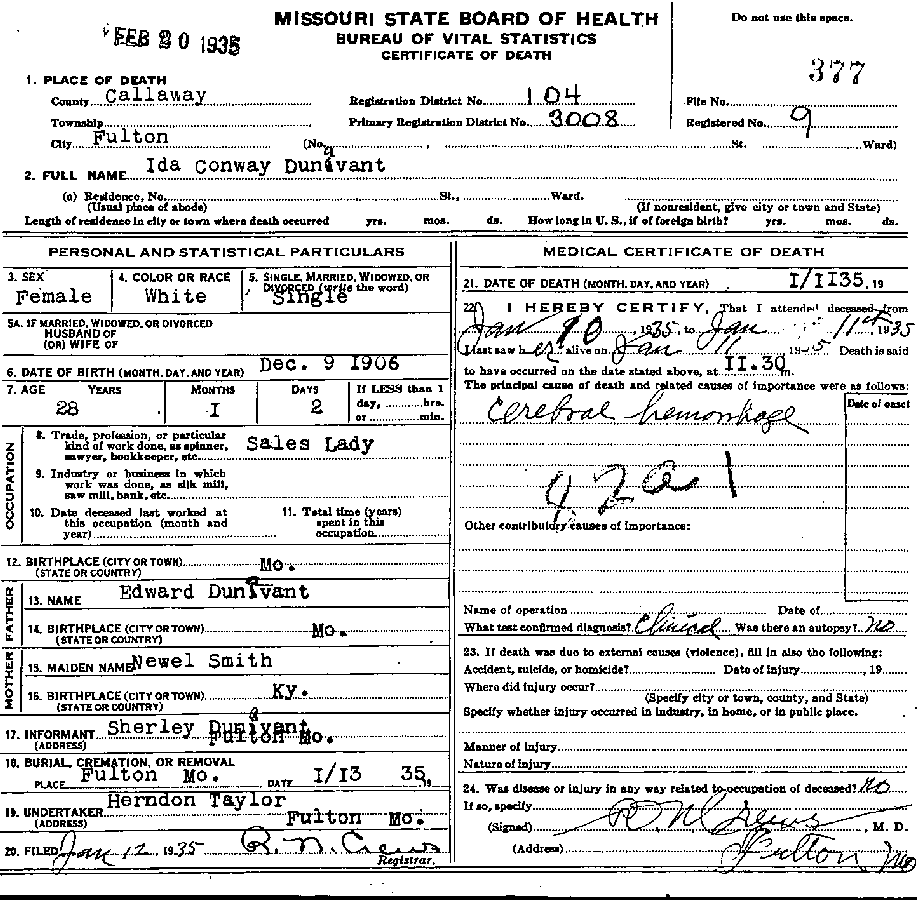 FEB 20 1935
MISSOURI STATE BOARD OF HEALTH
BUREAU OF VITAL STATISTICS
CERTIFICATE OF DEATH
Do not use this space.
377
1. PLACE OF DEATH
County Callaway
Registration District No. 104
File No.
Township
Primary Registration District No. 3008
Registered No. 9
City Fulton (No. , St. Ward)
2. FULL NAME Ida Conway Dunavant
(a) Residence, No. St., Ward.
(Usual place of abode) (If nonresident, give city or town and State)
Length of residence in city or town where death occurred yrs. mos. ds. How long in U. S., if of foreign birth? yrs. mos. ds.
PERSONAL AND STATISTICAL PARTICULARS
3. SEX
Female
4. COLOR OR RACE
White
5. SINGLE, MARRIED, WIDOWED, OR
DIVORCED (write the word)
Single
5A. IF MARRIED, WIDOWED, OR DIVORCED
HUSBAND OF
(OR) WIFE OF
6. DATE OF BIRTH (MONTH, DAY, AND YEAR) Dec. 9 1906
7. AGE YEARS MONTHS DAYS If LESS than 1
day, hrs.
or min.
28 I 2
OCCUPATION
8. Trade, profession, or particular
kind of work done, as spinner,
sawyer, bookkeeper, etc. Sales Lady
9. Industry or business in which
work was done, as silk mill,
saw mill, bank, etc.
10. Date deceased last worked at
this occupation (month and
year)
11. Total time (years)
spent in this
occupation
12. BIRTHPLACE (CITY OR TOWN) Mo.
(STATE OR COUNTRY)
FATHER
13. NAME Edward Dunavant
14. BIRTHPLACE (CITY OR TOWN) Mo.
(STATE OR COUNTRY)
MOTHER
15. MAIDEN NAME Newel Smith
16. BIRTHPLACE (CITY OR TOWN) Ky.
(STATE OR COUNTRY)
17. INFORMANT Sherley Dunavant
(ADDRESS) Fulton Mo.
18. BURIAL, CREMATION, OR REMOVAL
PLACE Fulton Mo. DATE I/I3 35, 19
19. UNDERTAKER Herndon Taylor
(ADDRESS) Fulton Mo.
20. FILED Jan 12 1935 R. N. Crews
Registrar.
MEDICAL CERTIFICATE OF DEATH
21. DATE OF DEATH (MONTH, DAY, AND YEAR) I/II35, 19
22. I HEREBY CERTIFY, That I attended deceased from
Jan 10, 1935 to Jan 11th 1935
I last saw her alive on Jan 11 1935 Death is said
to have occurred on the date stated above, at II.30 m.
The principal cause of death and related causes of importance were as follows:
Date of onset
Cerebral hemorrhage
Other contributory causes of importance:
Name of operation Date of
What test confirmed diagnosis? Clinical Was there an autopsy? no
23. If death was due to external causes (violence), fill in also the following:
Accident, suicide, or homicide? Date of injury , 19
Where did injury occur?
(Specify city or town, county, and State)
Specify whether injury occurred in industry, in home, or in public place.
Manner of injury
Nature of injury
24. Was disease or injury in any way related to occupation of deceased? no
If so, specify
(Signed) R N Crews, M. D.
(Address) Fulton Mo